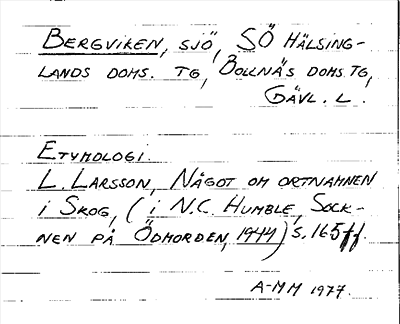 BERGVIKEN, SJÖ, SÖ HÄLSING-
LANDS DOMS. TG, BOLLNÄS DOMS.TG,
GÄVL. L.
ETYMOLOGI.
L. LARSSON, NÅGOT OM ORTNAMNEN
I SKOG, (I N.C. HUMBLE, SOCK-
NEN PÅ ÖDMORDEN, 1944) S. 165 ff.
A-MM 1977.